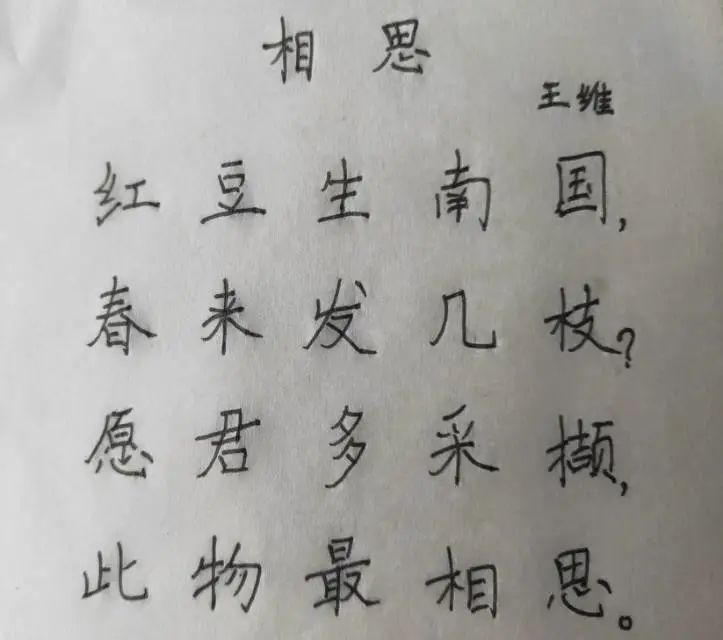 相思
王维
红豆生南国,
春来发几枝?
愿君多采撷,
此物最相思。